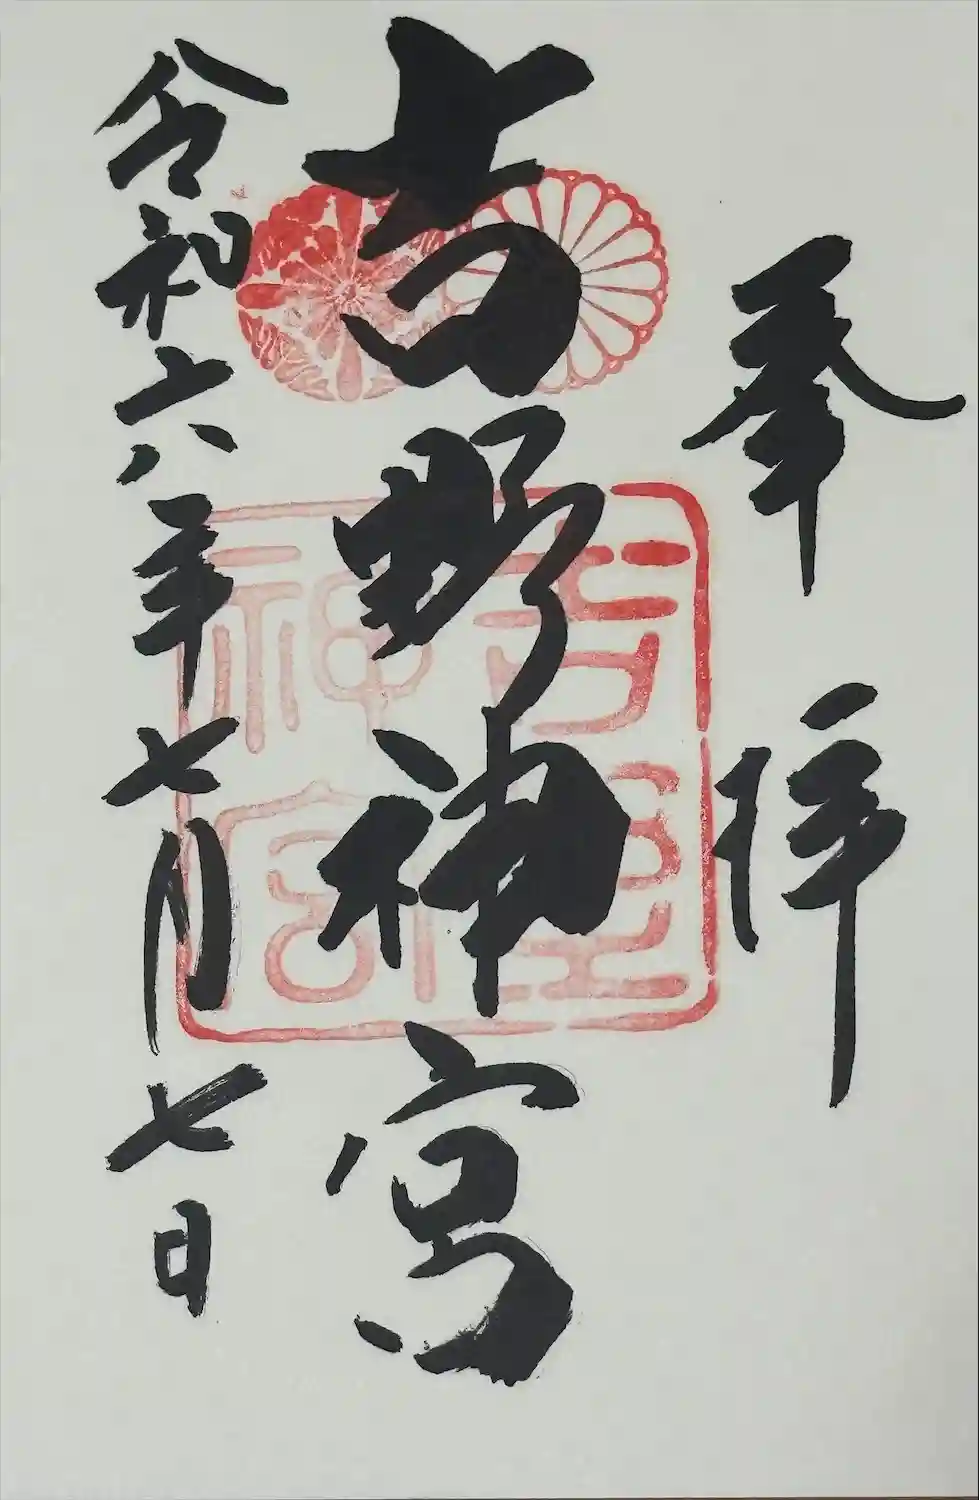 奉拝
吉野神宮
吉野神宮
令和六年七月七日